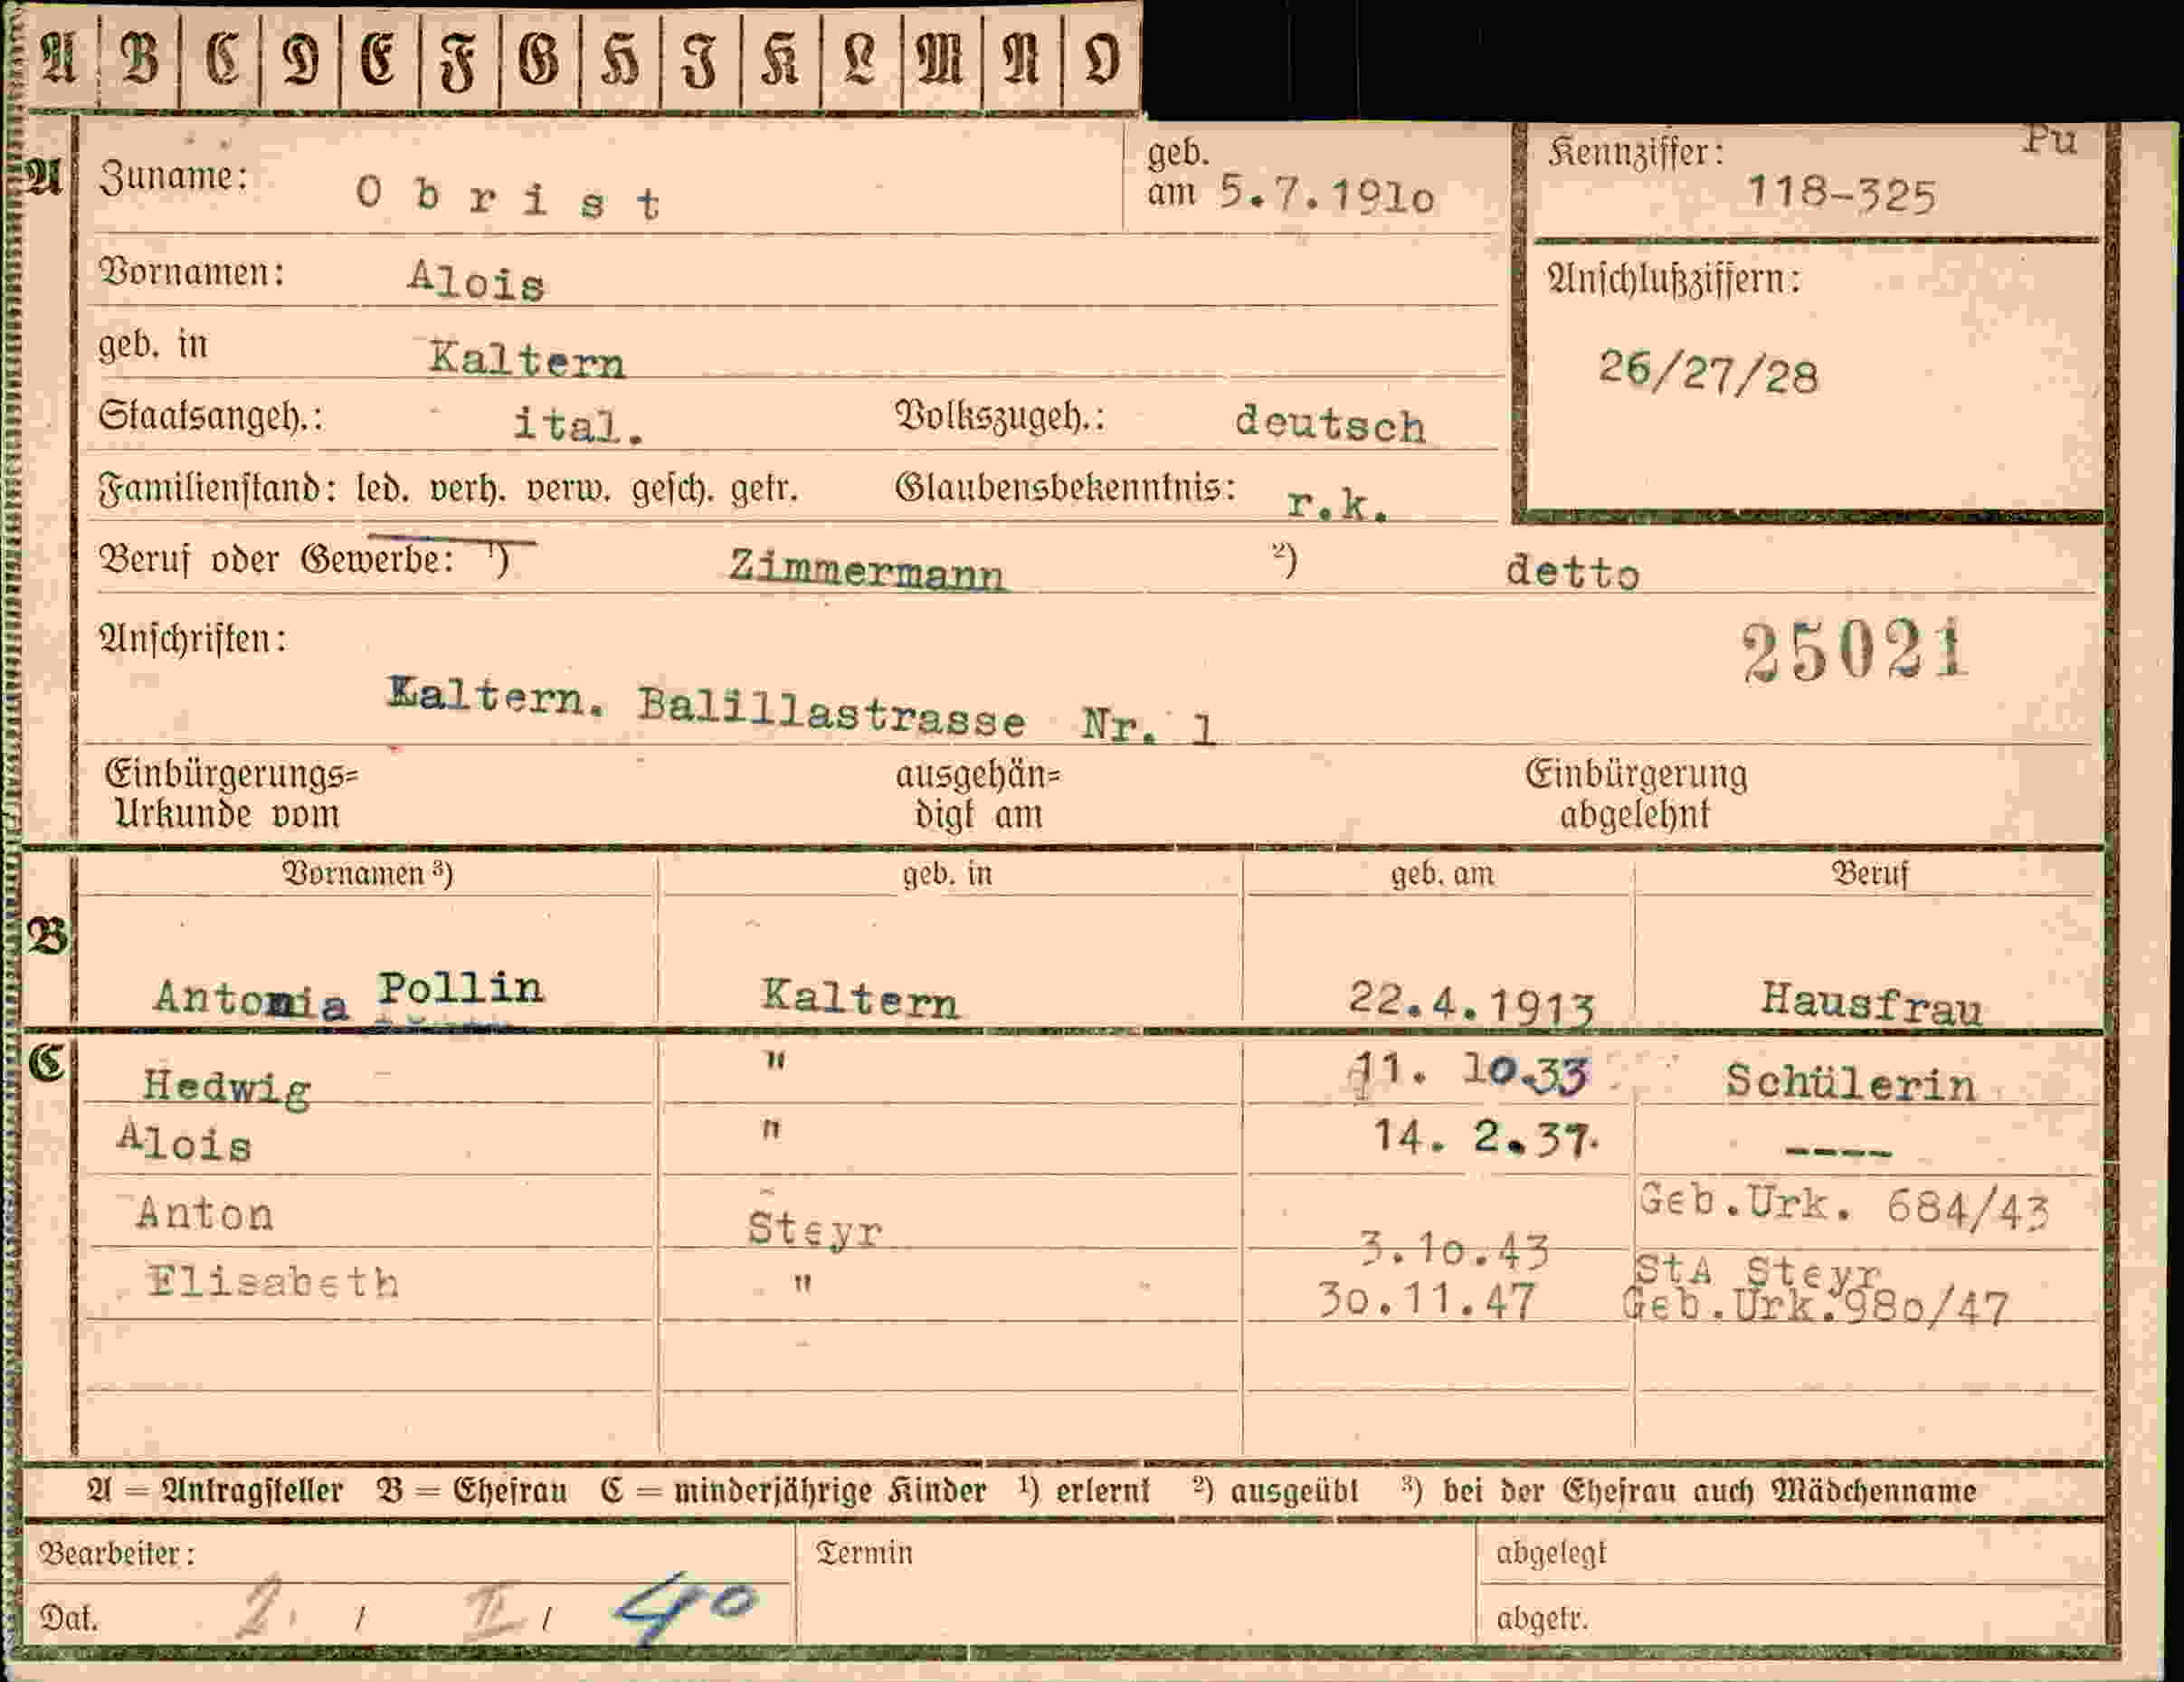 A B C D E F G H I K L M N O
A Zuname: Obrist geb. am 5.7.191o
Kennziffer: Pu
118-325
Vornamen: Alois
Anschlußziffern:
26/27/28
geb. in Kaltern
Staatsangeh.: ital. Volkszugeh.: deutsch
Familienstand: led. verh. verw. gesch. getr. Glaubensbekenntnis: r.k.
Beruf oder Gewerbe: 1) Zimmermann 2) detto
Anschriften: 25021
Kaltern. Balillastrasse Nr. 1
Einbürgerungs= ausgehän= Einbürgerung
Urkunde vom digt am abgelehnt
Vornamen 3) geb. in geb. am Beruf
B
Antonia Pollin Kaltern 22.4.1913 Hausfrau
C Hedwig " 11. 10.33 Schülerin
Alois " 14. 2.37. ----
Anton Steyr 3.1o.43 Geb.Urk. 684/43
StA Steyr
Elisabeth " 3o.11.47 Geb.Urk.98o/47
A = Antragsteller B = Ehefrau C = minderjährige Kinder 1) erlernt 2) ausgeübt 3) bei der Ehefrau auch Mädchenname
Bearbeiter: Termin abgelegt
Dat. 2. / II / 40 abgetr.